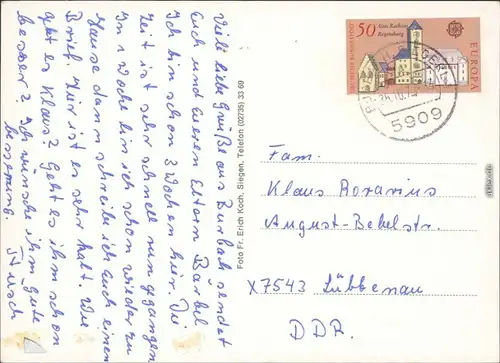 Viele liebe Grüße aus Burbach sendet
Euch und Eueren Eltern Bärbel
Ich bin schon 3 Wochen hier. Die
Zeit ist sehr schnell rumgegangen
In 1 Woche bin ich schon wieder zu
Hause dann schreibe ich auch einen
Brief. Hier ist es sehr kalt. Wie
geht es Klaus? Geht es ihm schon
besser? Ich wünsche ihm gute
besserung. Tschüß
Foto Fr. Erich Koch, Siegen, Telefon (02735) 33 69
50 Altes Rathaus
Regensburg
DEUTSCHE BUNDESPOST
EUROPA
CEPT
5909
Fam.
Klaus Rovarius
August-Bebelstr.
X7543 Lübbenau
DDR.